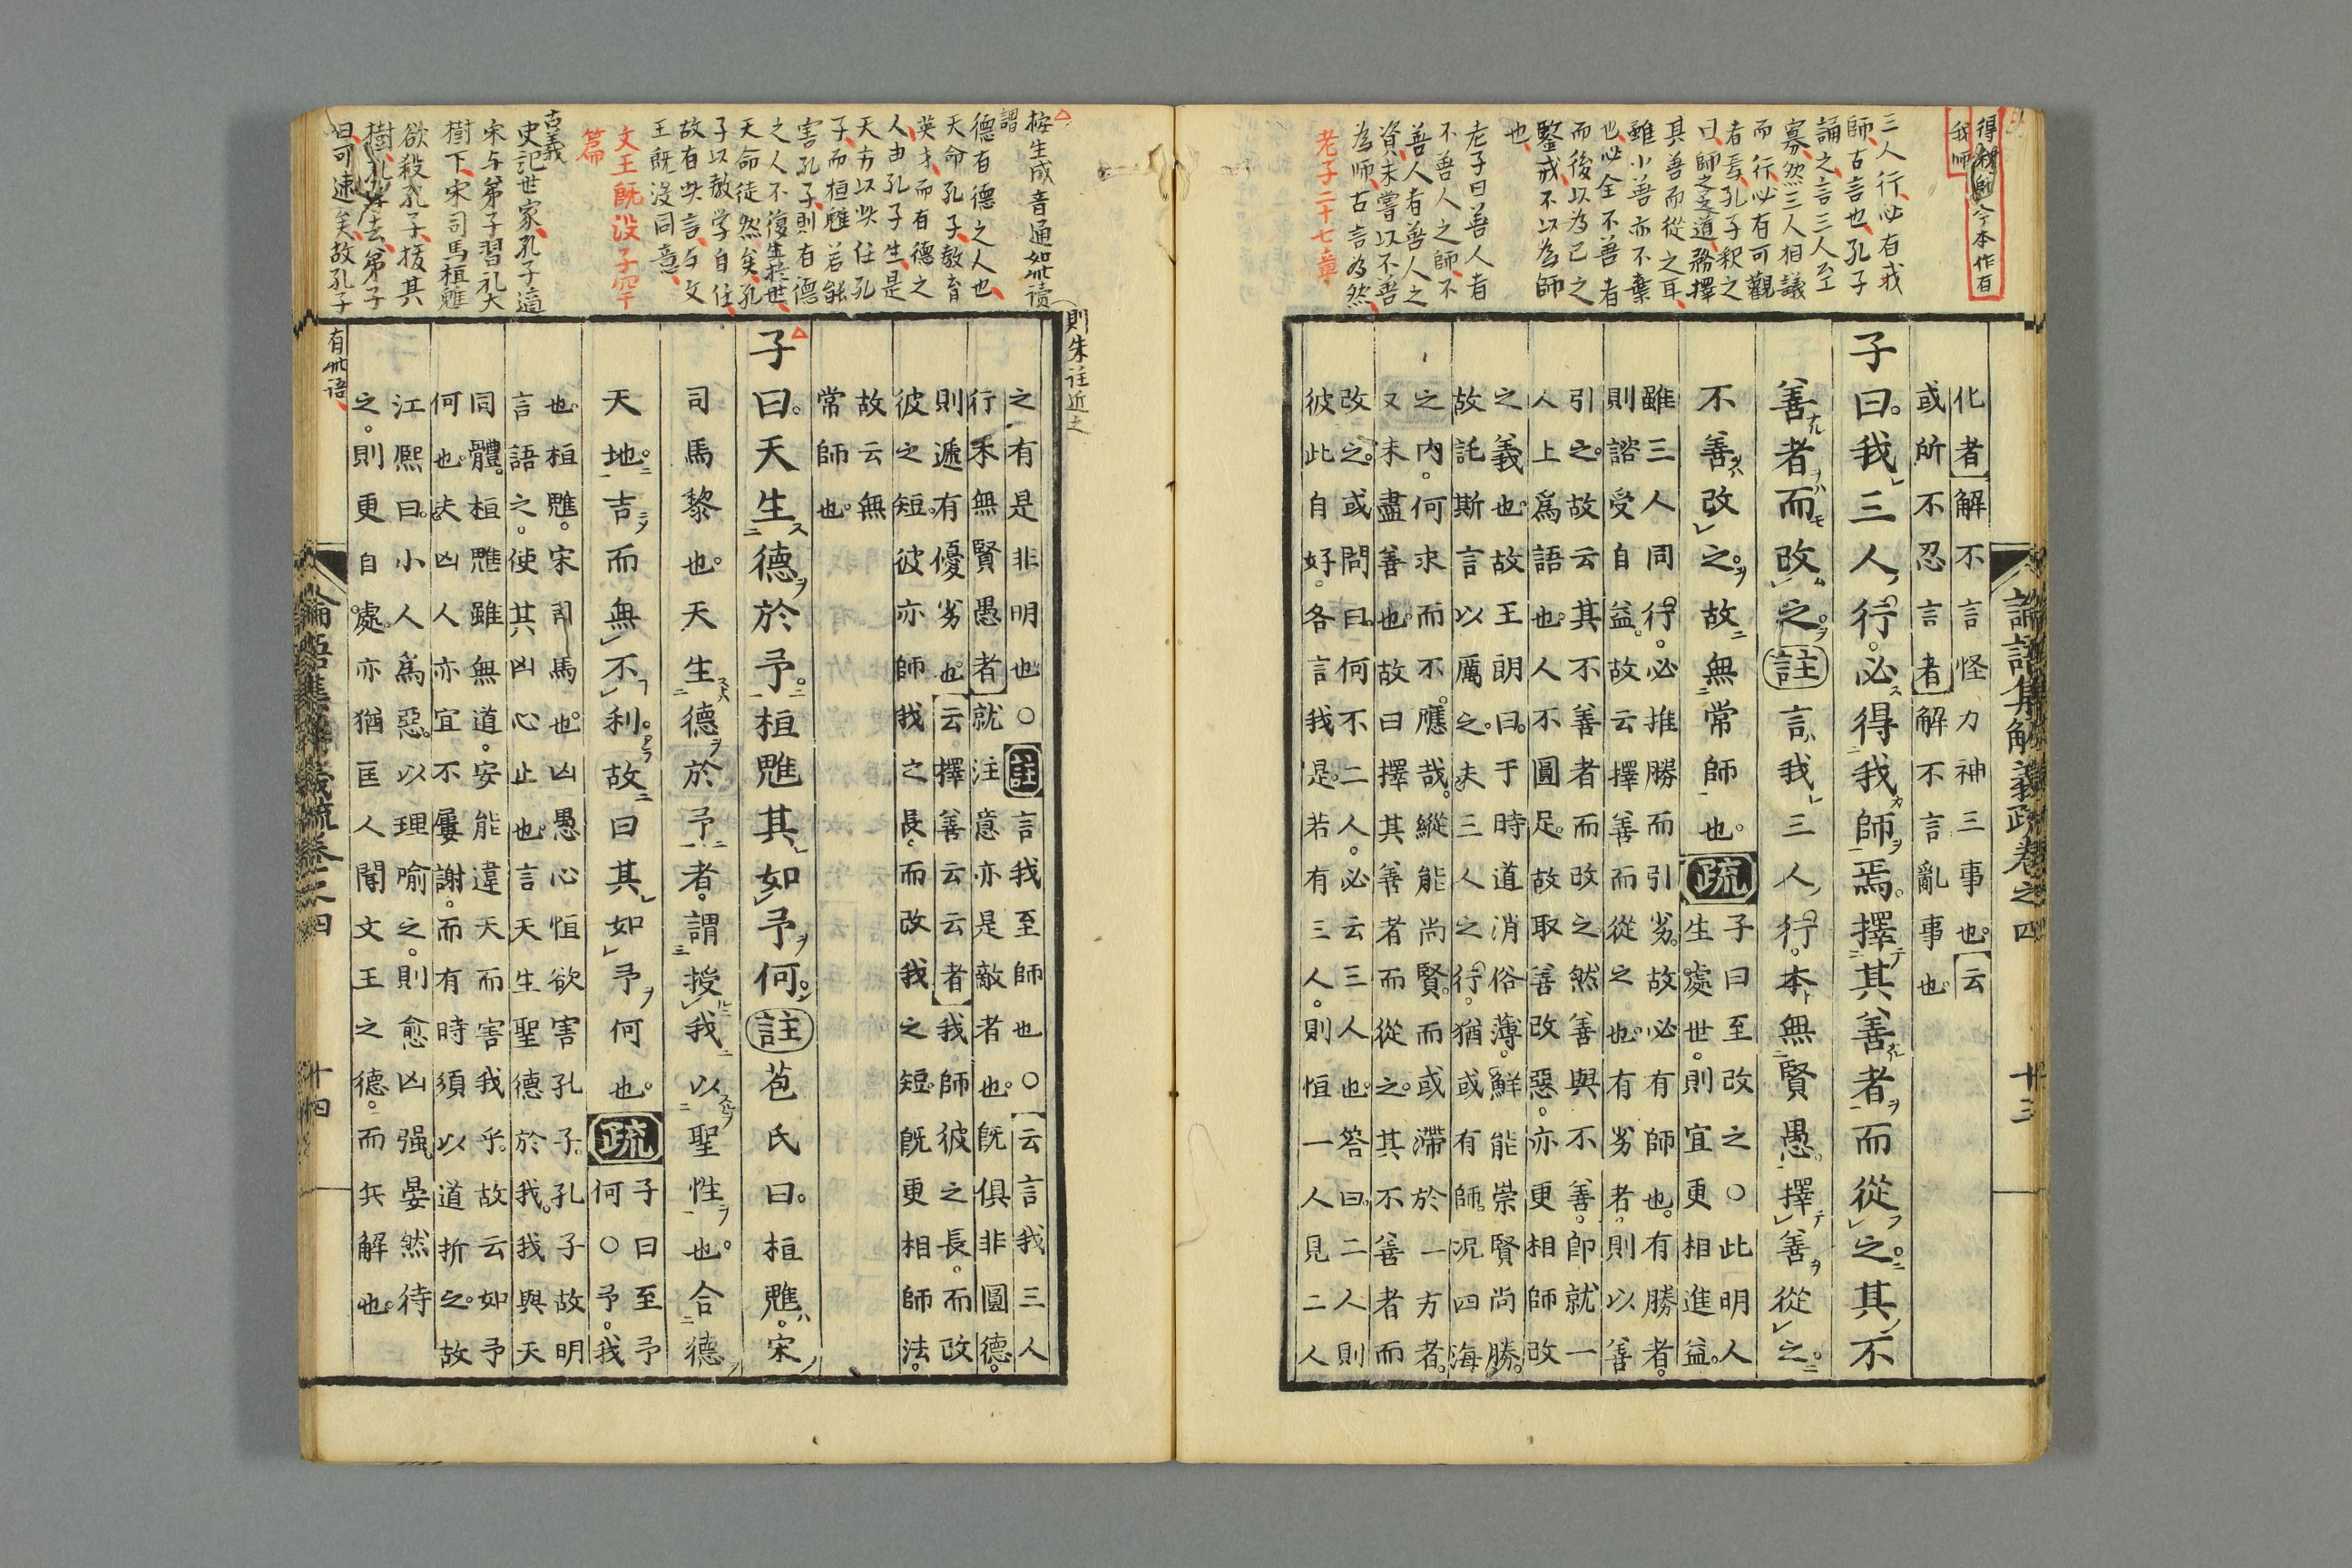 得我師今本作有
我師
三人行必有我
師古言也孔子
誦之言三人至
寡然三人相議
而行必有可觀
者焉孔子釈之
曰師之之道務擇
其善而從之耳
雖小善亦不棄
也必全不善者
而後以為已之
鑒戒不以為師
也
老子曰善人者
不善人之師不
善人者善人之
資未嘗以不善
為师古言為然
老子二十七章
論語集解義疏卷之四
廿三
化者解不言怪力神三事也云
或所不忍言者解不言亂事也
子曰我三人行必得我師焉擇其善者而從之其不
善者而改之註言我三人行本無賢愚擇善從之
不善改之故無常師也疏
子曰至改之○此明人
生處世則宜更相進益
雖三人同行必推勝而引劣故必有師也有勝者
則諮受自益故云擇善而從之也有劣者則以善
引之故云其不善者而改之然善與不善即就一
人上爲語也人不圓足故取善改惡亦更相師改
之義也故王朗曰于時道消俗薄鮮能崇賢尚勝
故託斯言以厲之夫三人之行猶或有師況四海
之內何求而不應哉縱能尚賢而或滯於一方者
又未盡善也故曰擇其善者而從之其不善者而
改之或問曰何不二人必云三人也答曰二人則
彼此自好各言我是若有三人則恒一人見二人
則朱註近之
桉生成音通如此读
謂
德有德之人也
天命孔子教育
英才而有德之
人由孔子生是
天方以此任孔
子而桓魋若能
害孔子則有德
之人不復生於世
天命徒然矣孔
子以教学自任
故有此言与文
王既没同意
文王既没子罕
篇
古義
史記世家孔子適
宋与弟子習礼大
樹下宋司馬桓魋
欲殺孔子拔其
樹孔子去弟子
曰可速矣故孔子
有此语
之有是非明也○註言我至師也○云言我三人
行本無賢愚者就注意亦是敵者也既俱非圓德
則遞有優劣也云擇善云云者我師彼之長而改
彼之短彼亦師我之長而改我之短既更相師法
故云無
常師也
子曰天生德於予桓魋其如予何註苞氏曰桓魋宋
司馬黎也天生德於予者謂授我以聖性也合德
天地吉而無不利故曰其如予何也疏
子曰至予
何○予我
也桓魋宋司馬也凶愚心恒欲害孔子孔子故明
言語之使其凶心止也言天生聖德於我我與天
同體桓魋雖無道安能違天而害我乎故云如予
何也夫凶人亦宜不屢謝而有時須以道折之故
江熙曰小人爲惡以理喻之則愈凶强晏然待
之則更自處亦猶匡人聞文王之德而兵解也
論語集解義疏卷之四
廿四